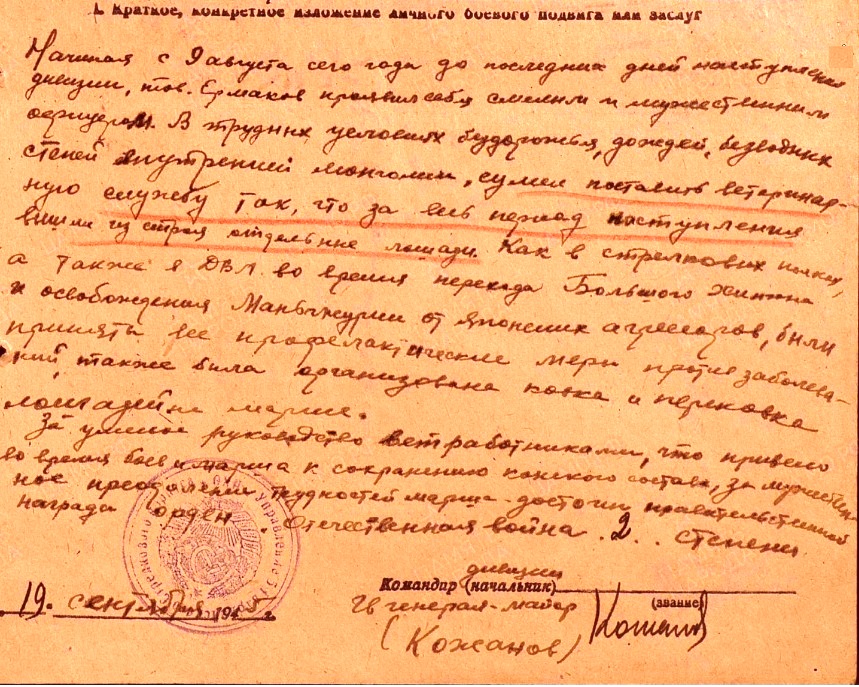 I. Краткое, конкретное изложение личного боевого подвига или заслуг
Начиная с 9 августа сего года до последних дней наступления
дивизии, тов. Ермаков проявил себя смелым и мужественным
офицером. В трудных условиях бездорожья, дождей, безводных
степей внутренней монголии, сумел поставить ветеринар-
ную службу так, что за весь период наступления
вышли из строя отдельные лошади. Как в стрелковых полках,
а также в ДВЛ во время перехода Большого Хингана
и освобождения Маньчжурии от японских агрессоров, были
приняты все профилактические меры против заболева-
ний, также была организована ковка и перековка
лошадей на марше.
За умелое руководство ветработниками, что привело
во время боев и марша к сохранению конского состава, за мужествен-
ное преодоление трудностей марша - достоин правительственной
награды орден "Отечественная война" 2 степени
дивизии
Командир (начальник)
19. сентября 1945 г.
Гв генерал-майор
(звание)
(Кожанов)